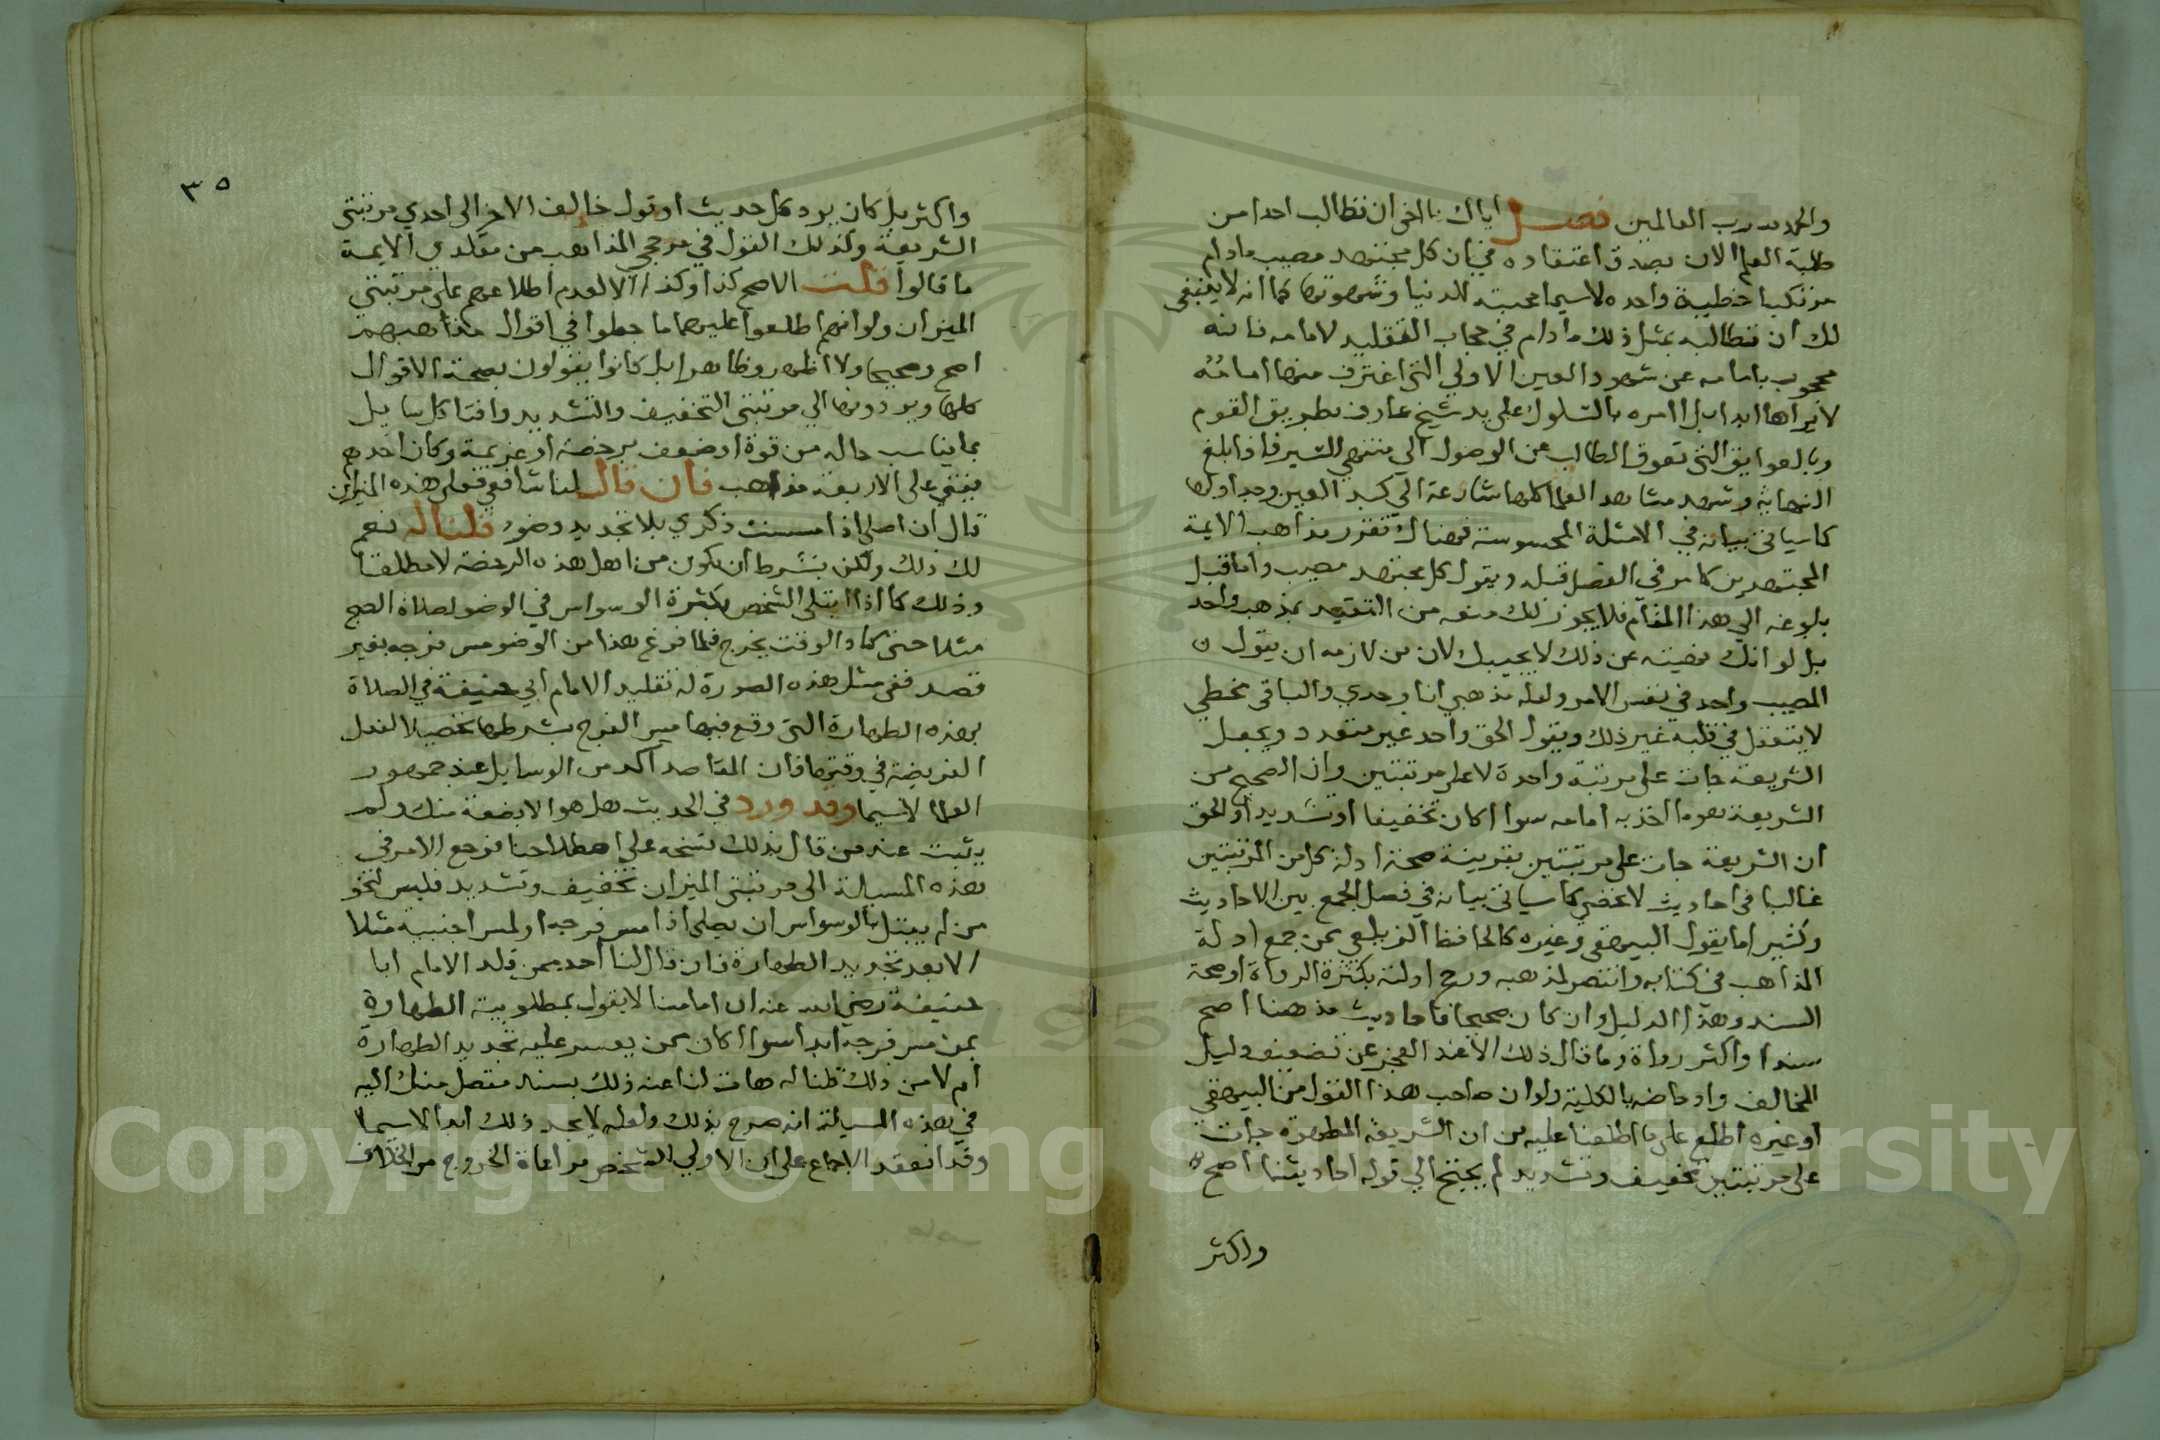 والحمد لله رب العالمين فصل اياك يا اخي ان تطالب احدا من
طلبة العلم الان بصدق اعتقاده في ان كل مجتهد مصيب ما دام
مرتكبا خطيية واحده لاسيما محبته للدنيا وشهوتها كما انه لا ينبغي
لك ان تطالبه بمثل ذلك ما دام في حجاب التقليد لامامه فانه
محجوب بامامه عن شهود العين الاولي التي اغترف منها امامه
لا يراها ابدا بل امره بالسلوك على يد شيخ عارف بطريق القوم
وبالعوايق التي تعوق الطالب عن الوصول الي منتهي السير فاذا بلغ
النهاية وشهد مشاهد العلما كلها شارعة الي كبد العين وجداولها
كما سياتي بيانه في الامثلة المحسوسة فهناك تقرر مذاهب الايمة
المجتهدين كما مر في الفصل قبله ويقول كل مجتهد مصيب واما قبل
بلوغه الي هذا المقام فلا يجوز لك منعه من التقيد بمذهب واحد
بل لو انك نهيته عن ذلك لا يجيبك لان من لازمه ان يقول
المصيب واحد في نفس الامر ولعله مذهبي انا وحدي والباقي مخطي
لا يتعقل في قلبه غير ذلك ويقول الحق واحد غير متعدد ويجعل
الشريعة جات على مرتبة واحدة لا على مرتبتين وان الصحيح من
الشريعة هو ما اخذ به امامه سوا اكان تخفيفا او تشديدا والحق
ان الشريعة جات على مرتبتين بقرينة صحة ادلة كل من المرتبتين
غالبا في احاديث لا تحصي كما سياتي بيانه في فصل الجمع بين الاحاديث
وكثيرا ما يقول البيهقي وغيره كالحافظ الزيلعي ممن جمع ادلة
المذاهب في كتابه وانتصر لمذهبه ورجح ادلته بكثرة الرواة او صحة
السند وهذا الدليل وان كان صحيحا فاحاديث مذهبنا اصح
سندا واكثر رواة وما قال ذلك الا عند العجز عن تضعيف دليل
المخالف وادحاضه بالكلية ولو ان صاحب هذا القول من البيهقي
او غيره اطلع على ما اطلعنا عليه من ان الشريعة المطهرة جات
على مرتبتين تخفيف وتشديد لم يحتج الي قوله احاديثنا اصح
واكثر
٣٥
واكثر بل كان يرد كل حديث او قول خالف الاخر الى احدي مرتبتي
الشريعة وكذلك القول في مرجحي المذاهب من مقلدي الايمة
ما قالوا قلت الاصح كذا وكذا الا لعدم اطلاعهم على مرتبتي
الميزان ولو انهم اطلعوا عليهما ما جعلوا في اقوال مذاهبهم
اصح وصحيحا ولا اظهر وظاهرا بل كانوا يقولون بصحة الاقوال
كلها ويردونها الي مرتبتي التخفيف والتشديد وافتا كل سايل
بما يناسب حاله من قوة او ضعف برخصة او عزيمة وكان احدهم
يفتي على الاربعة مذاهب فان قال لنا شافعي فعلى هذه الميزان
قال ان اصلي اذا مسست ذكري بلا تجديد وضوء قلنا له نعم
لك ذلك ولكن بشرط ان يكون من اهل هذه الرخصة لا مطلقا
وذلك كما اذا ابتلي الشخص بكثرة الوسواس في الوضو لصلاة الصبح
مثلا حتي كاد الوقت يخرج فلما فرغ هذا من الوضو مس فرجه بغير
قصد ففي مثل هذه الصورة له تقليد الامام ابي حنيفة في الصلاة
بهذه الطهارة التي وقع فيها مس الفرج بشرطها تحصيلا لفعل
الفريضة في وقتها فان المقاصد آكد من الوسايل عند جمهور
العلما لاسيما وقد ورد في الحديث هل هو الا بضعة منك ولم
يثبت عند من قال بذلك نسخه على اصطلاحنا فرجع الامر في
هذه المسيالة الى مرتبتي الميزان تخفيف وتشديد فليس لنحو
من لم يبتل بالوسواس ان يصلي اذا مس فرجه او لمس اجنبية مثلا
الا بعد تجديد الطهارة فان قال لنا احد ممن قلد الامام ابا
حنيفة رضي الله عنه ان امامنا لا يقول بمطلوبية الطهارة
ممن مس فرجه ابدا سوا اكان ممن يعسر عليه تجديد الطهارة
ام لا من ذلك قلنا له هات لنا عنه ذلك بسند متصل منك اليه
في هذه المسيالة انه صرح بذلك ولعله لا يجد ذلك ابدا لاسيما
وقد انعقد الاجماع على ان الاولي للشخص مراعاة الخروج من الخلاف
Copyright © King Saud University
195